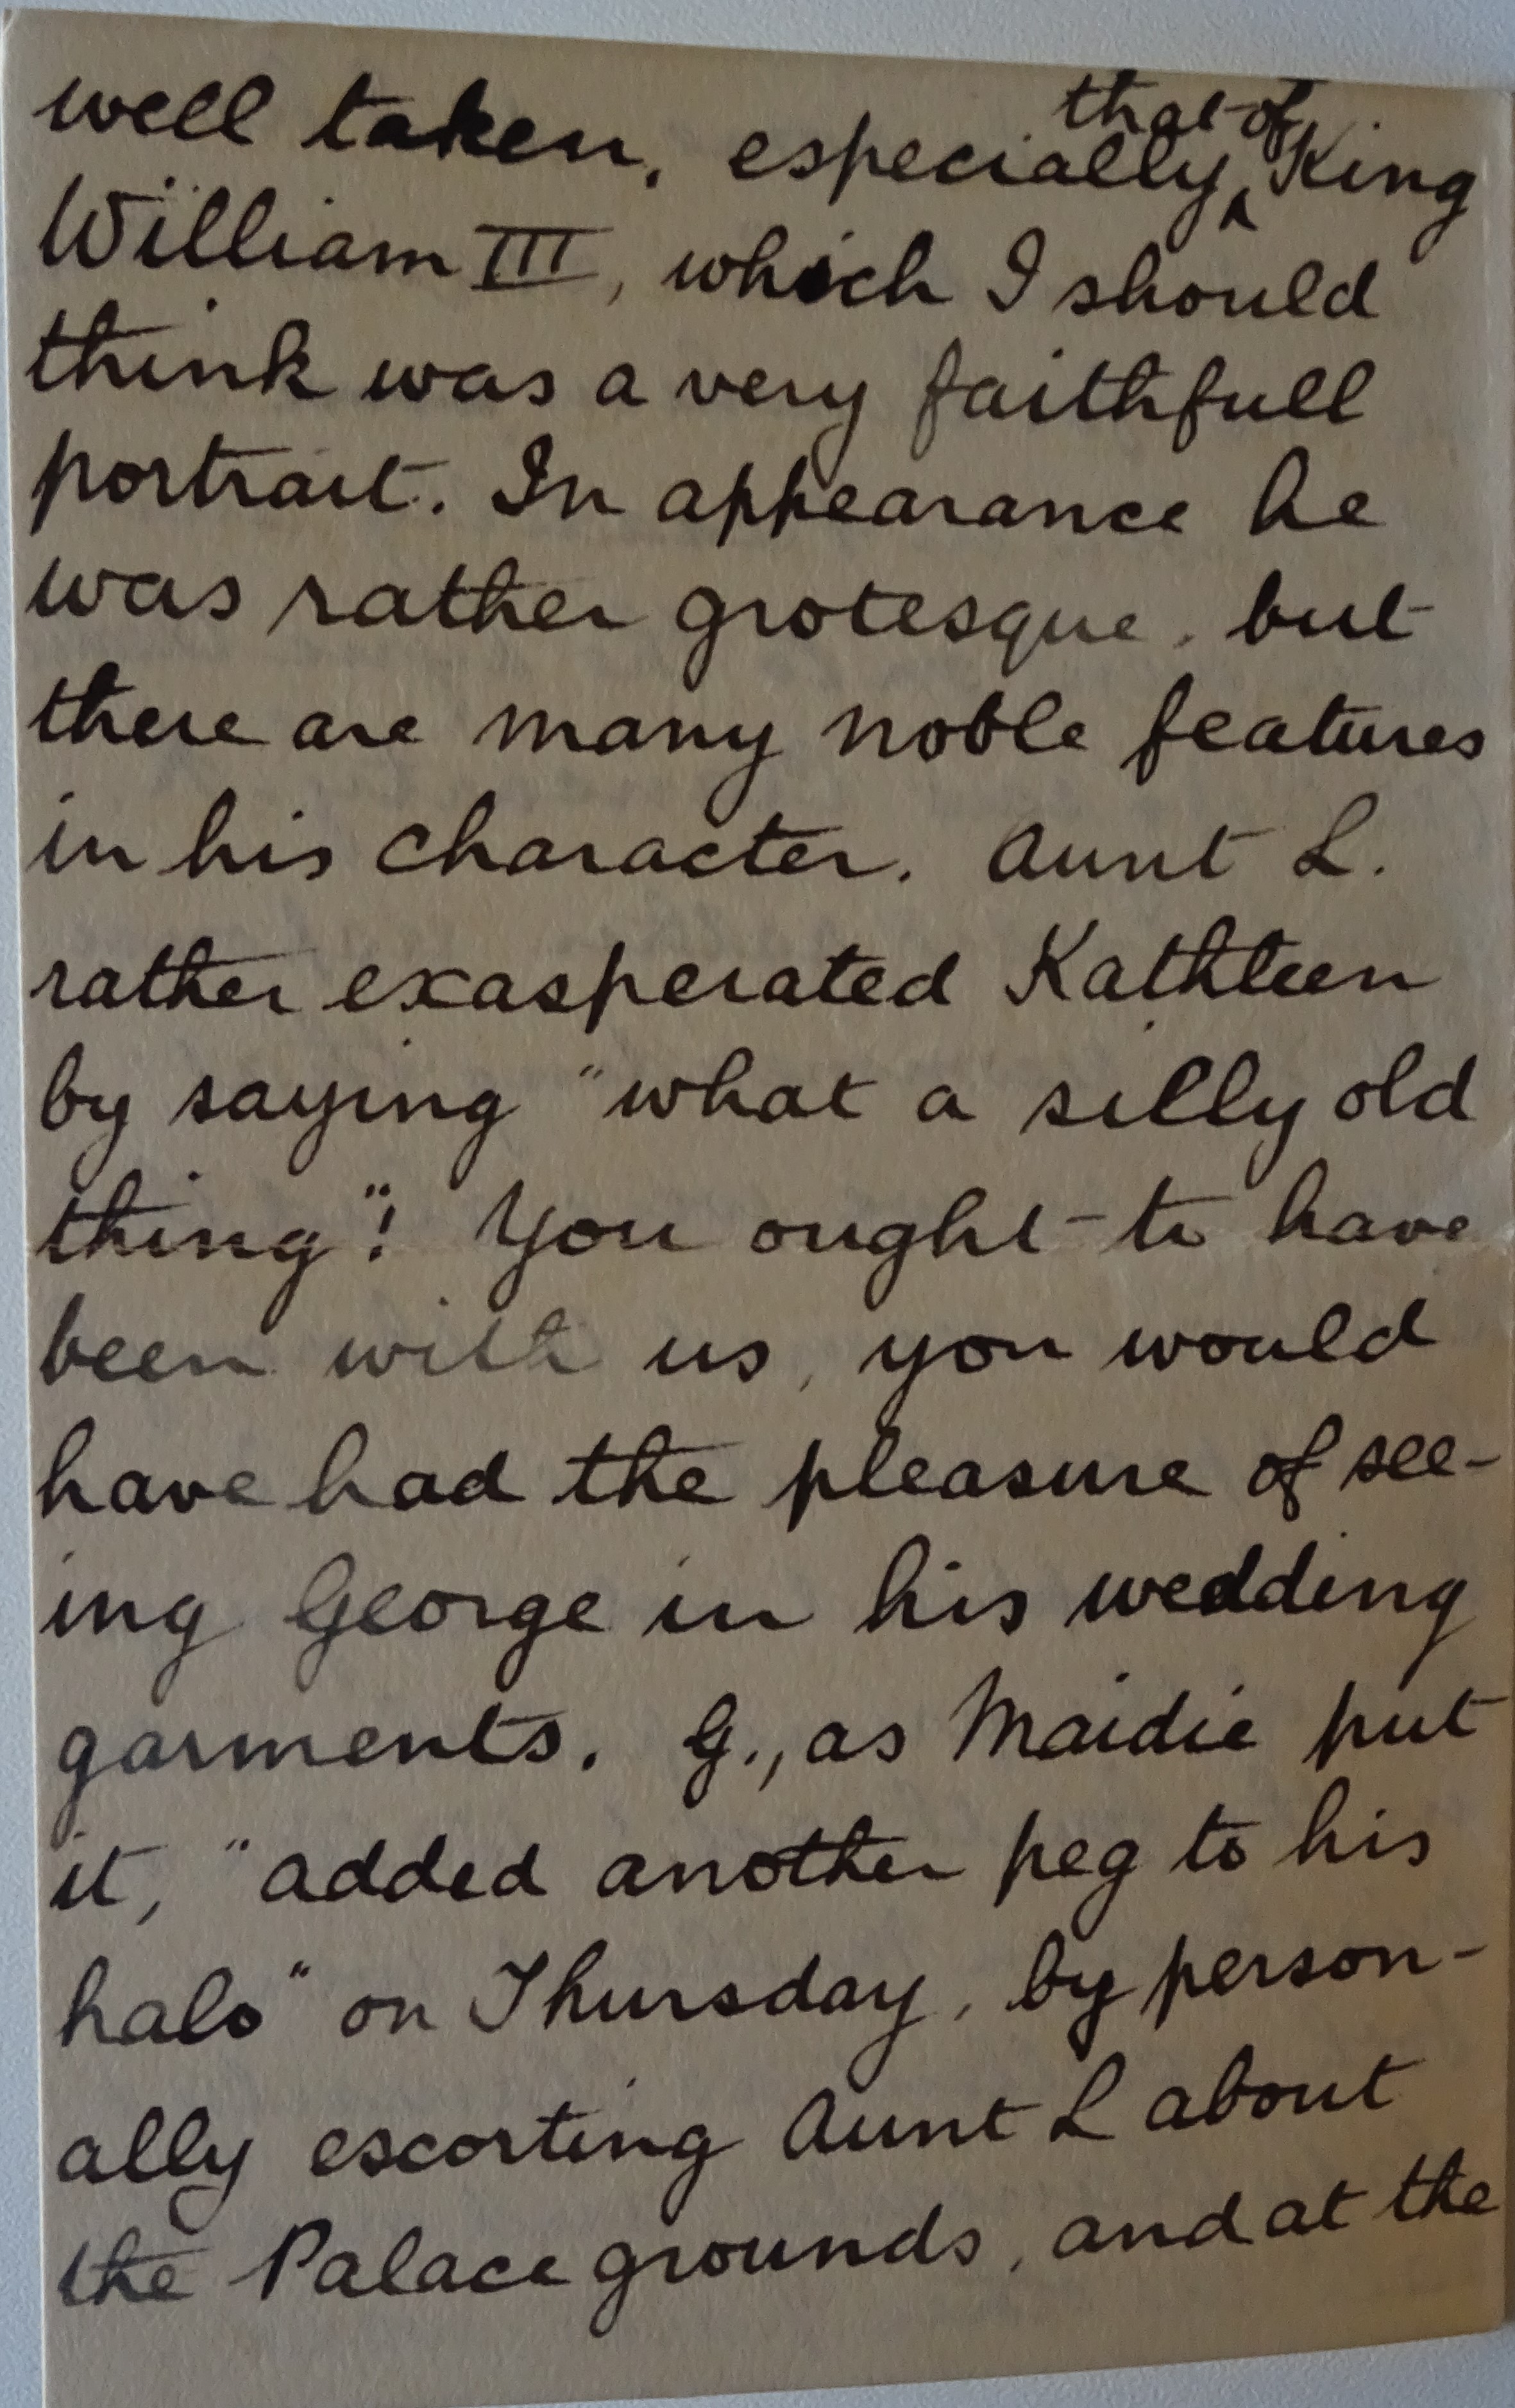 well taken, especially ^that of King
William III, which I should
think was a very faithfull
portrait. In appearance he
was rather grotesque, but
there are many noble features
in his character. Aunt L.
rather exasperated Kathleen
by saying "what a silly old
thing"! You ought to have
been with us, you would
have had the pleasure of see-
ing George in his wedding
garments. G., as Maidie put
it, "added another peg to his
halo" on Thursday, by person-
ally escorting Aunt L about
the Palace grounds, and at the